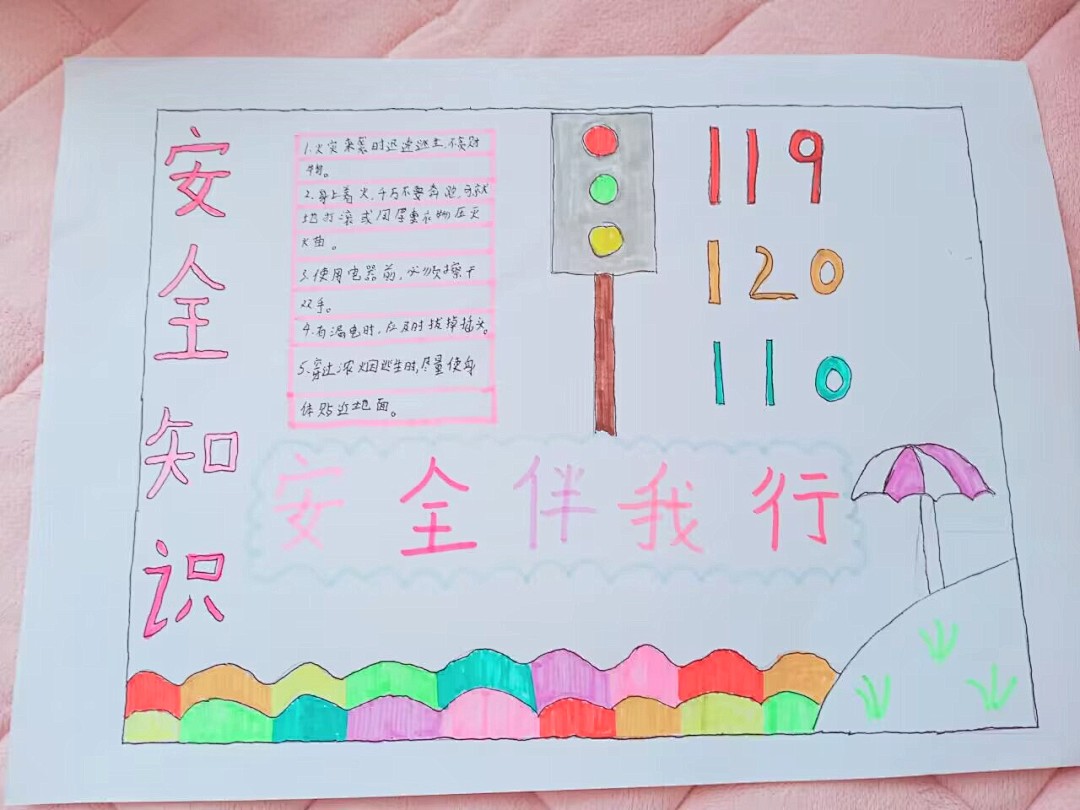 安全知识
1.火灾来袭时迅速逃生,不贪财
物。
2.身上着火,千万不要奔跑,可就
地打滚或用厚重衣物压灭
火苗。
3.使用电器前,必须擦干
双手。
4.有漏电时,应及时拔掉插头。
5.穿过浓烟逃生时,尽量使身
体贴近地面。
119
120
110
安全伴我行